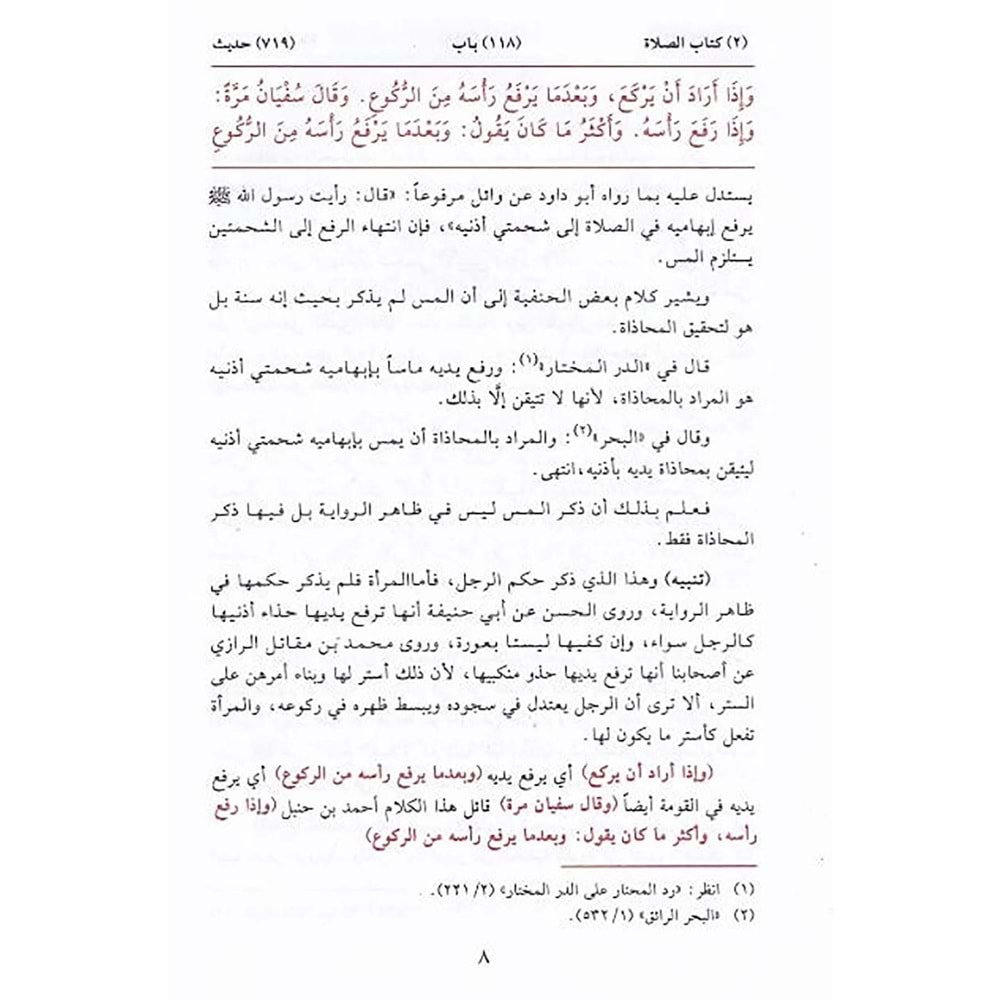 (٢) كتاب الصلاة (١١٨) باب (٧١٩) حديث
وَإِذَا أَرَادَ أَنْ يَرْكَعَ، وَبَعْدَمَا يَرْفَعُ رَأْسَهُ مِنَ الرُّكُوعِ. وَقَالَ سُفْيَانُ مَرَّةً:
وَإِذَا رَفَعَ رَأْسَهُ. وَأَكْثَرُ مَا كَانَ يَقُولُ: وَبَعْدَمَا يَرْفَعُ رَأْسَهُ مِنَ الرُّكُوعِ
يستدل عليه بما رواه أبو داود عن وائل مرفوعاً: «قال: رأيت رسول الله ﷺ
يرفع إبهاميه في الصلاة إلى شحمتي أذنيه»، فإن انتهاء الرفع إلى الشحمتين
يستلزم المس.
ويشير كلام بعض الحنفية إلى أن المس لم يذكر بحيث إنه سنة بل
هو لتحقيق المحاذاة.
قال في «الدر المختار»(١): ورفع يديه ماساً بإبهاميه شحمتي أذنيه
هو المراد بالمحاذاة، لأنها لا تتيقن إلَّا بذلك.
وقال في «البحر»(٢): والمراد بالمحاذاة أن يمس بإبهاميه شحمتي أذنيه
ليتيقن بمحاذاة يديه بأذنيه،انتهى.
فعلم بذلك أن ذكر المس ليس في ظاهر الرواية بل فيها ذكر
المحاذاة فقط.
(تنبيه) وهذا الذي ذكر حكم الرجل، فأماالمرأة فلم يذكر حكمها في
ظاهر الرواية، وروى الحسن عن أبي حنيفة أنها ترفع يديها حذاء أذنيها
كالرجل سواء، وإن كفيها ليستا بعورة، وروى محمد بن مقاتل الرازي
عن أصحابنا أنها ترفع يديها حذو منكبيها، لأن ذلك أستر لها وبناء أمرهن على
الستر، ألا ترى أن الرجل يعتدل في سجوده ويبسط ظهره في ركوعه، والمرأة
تفعل كأستر ما يكون لها.
(وإذا أراد أن يركع) أي يرفع يديه (وبعدما يرفع رأسه من الركوع) أي يرفع
يديه في القومة أيضاً (وقال سفيان مرة) قائل هذا الكلام أحمد بن حنبل (وإذا رفع
رأسه، وأكثر ما كان يقول: وبعدما يرفع رأسه من الركوع)
(١) انظر: «رد المحتار على الدر المختار» (٢/٢٢١).
(٢) «البحر الرائق» (١/٥٣٢).
٨